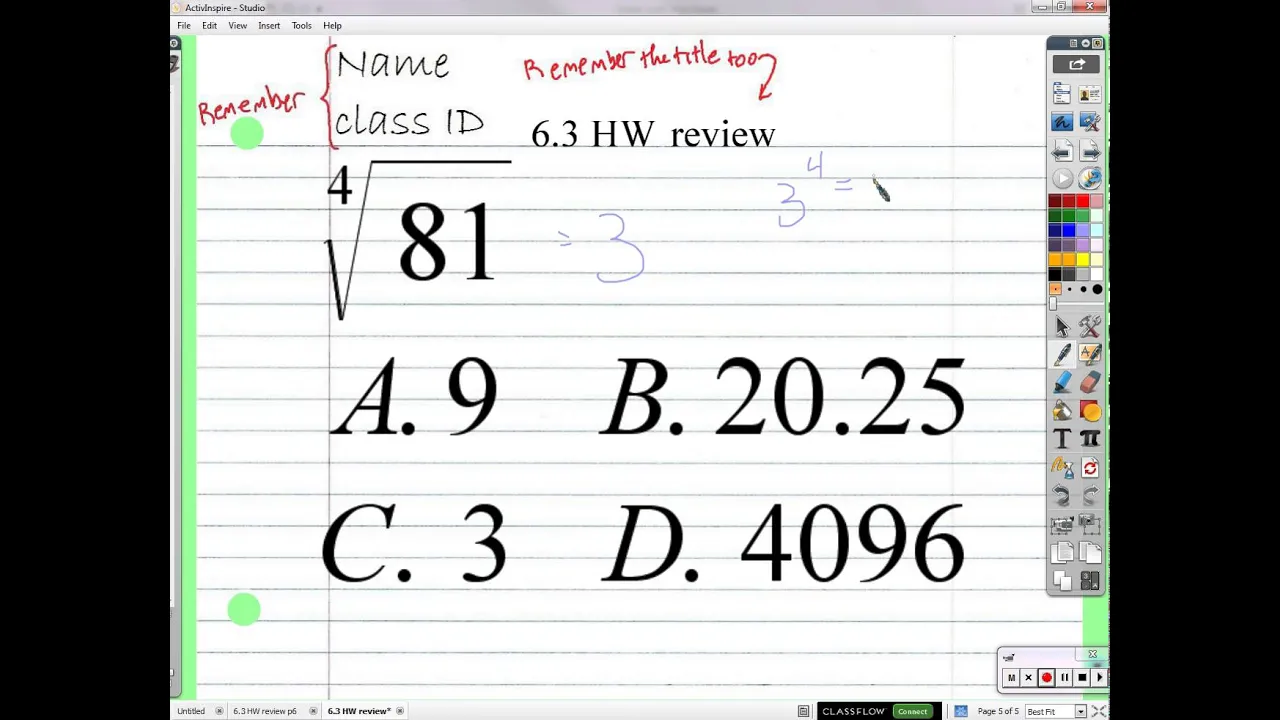 ActivInspire - Studio
File Edit View Insert Tools Help
Remember
Name
class ID
Remember the title too
6.3 HW review
4
81
= 3
3
4
=
A. 9
B. 20.25
C. 3
D. 4096
M
Untitled
6.3 HW review p6
6.3 HW rev
CLASSFLOW
Connect
Page 5 of 5
Best Fit